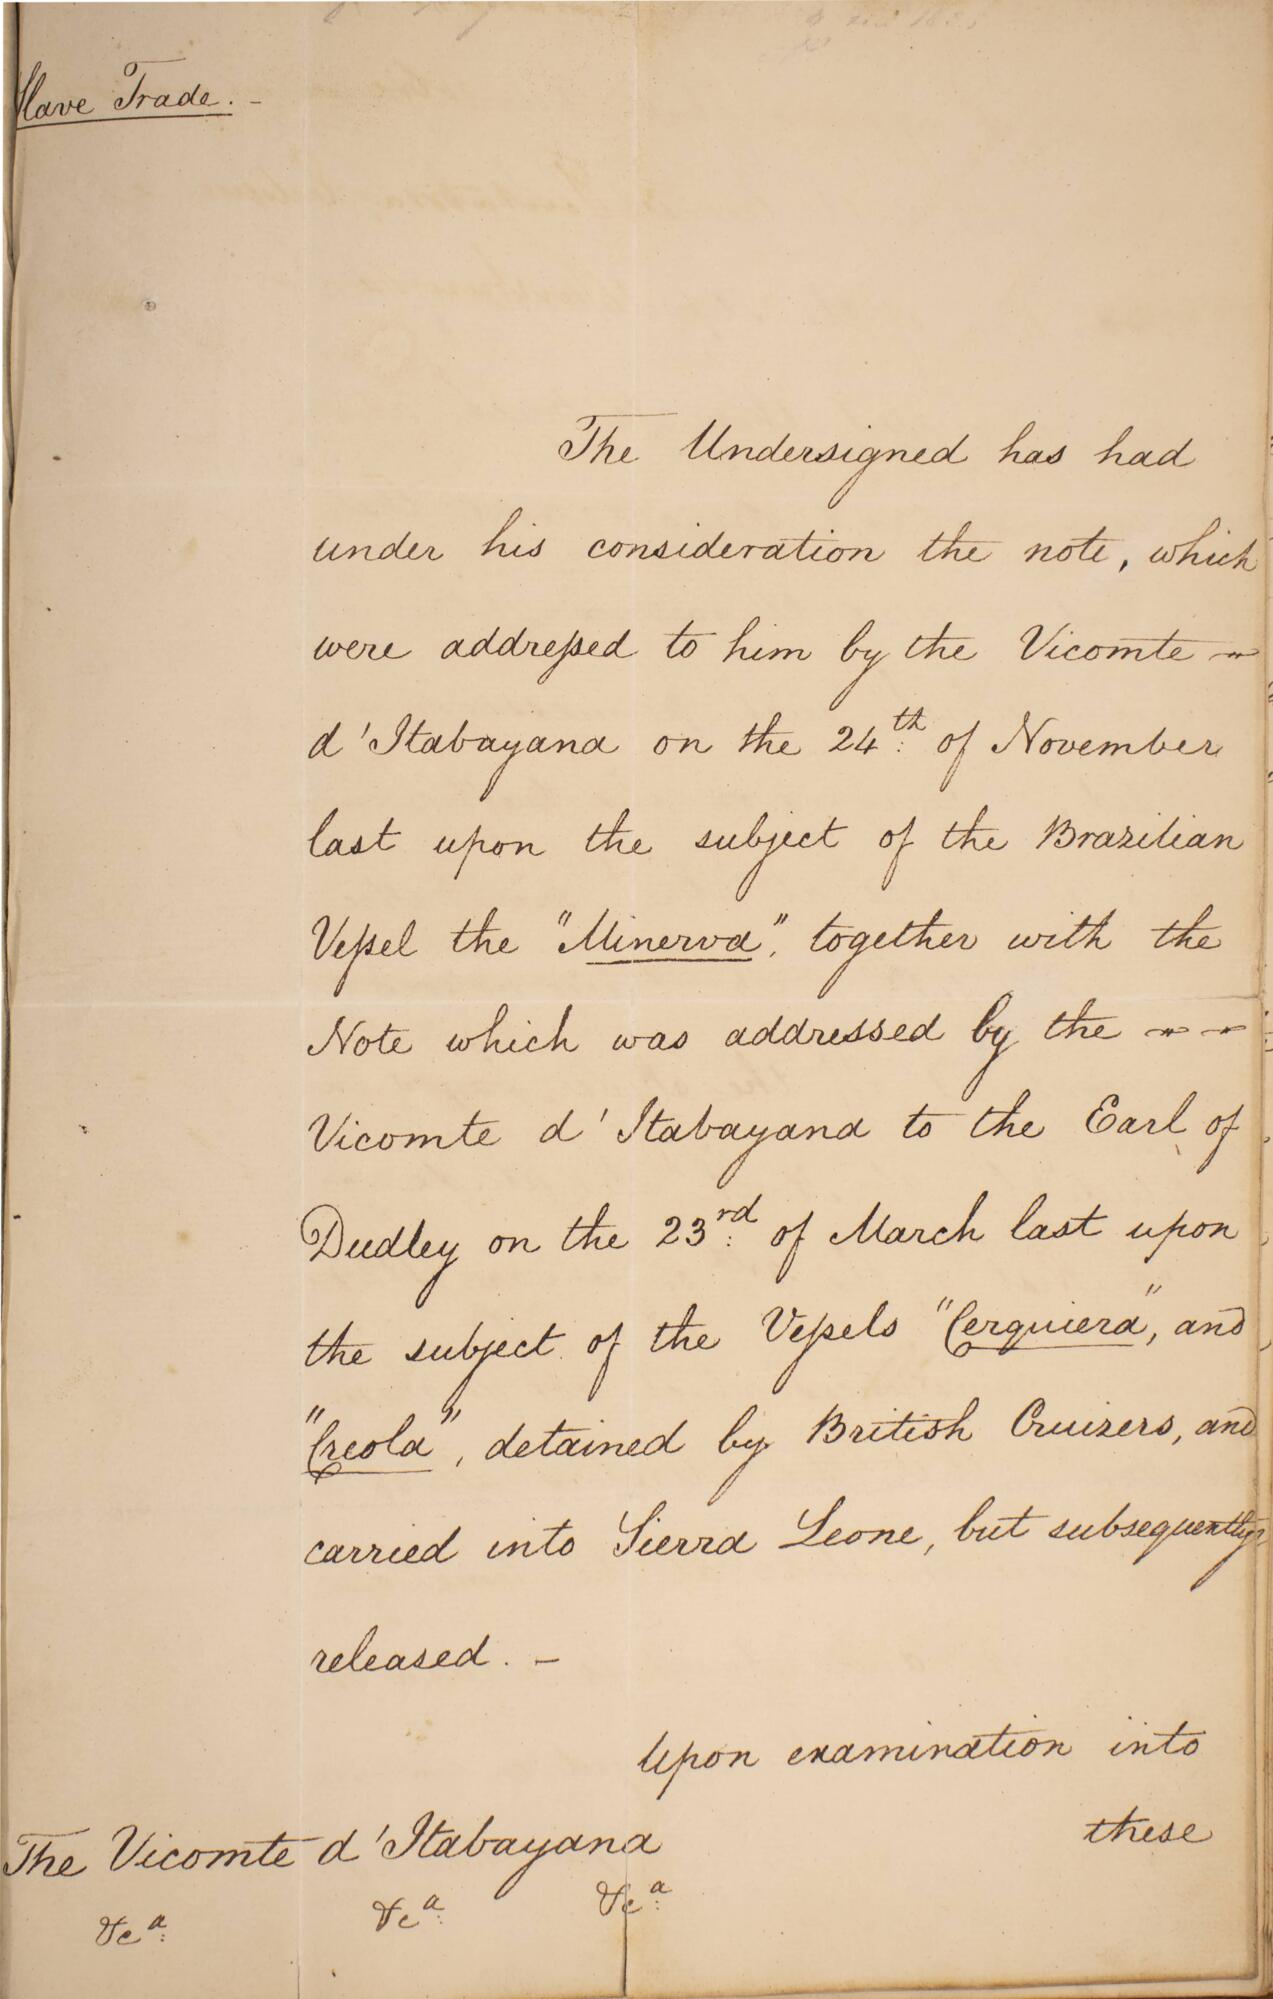 Slave Trade. -
The Undersigned has had
under his consideration the note, which
were addressed to him by the Vicomte
d'Itabayana on the 24th. of November
last upon the subject of the Brazilian
Vessel the "Minerva", together with the
Note which was addressed by the
Vicomte d'Itabayana to the Earl of
Dudley on the 23rd. of March last upon
the subject of the Vessels "Cerquiera", and
"Creola", detained by British Cruizers, and
carried into Sierra Leone, but subsequently
released. -
Upon examination into
these
The Vicomte d'Itabayana
&ca. &ca. &ca.